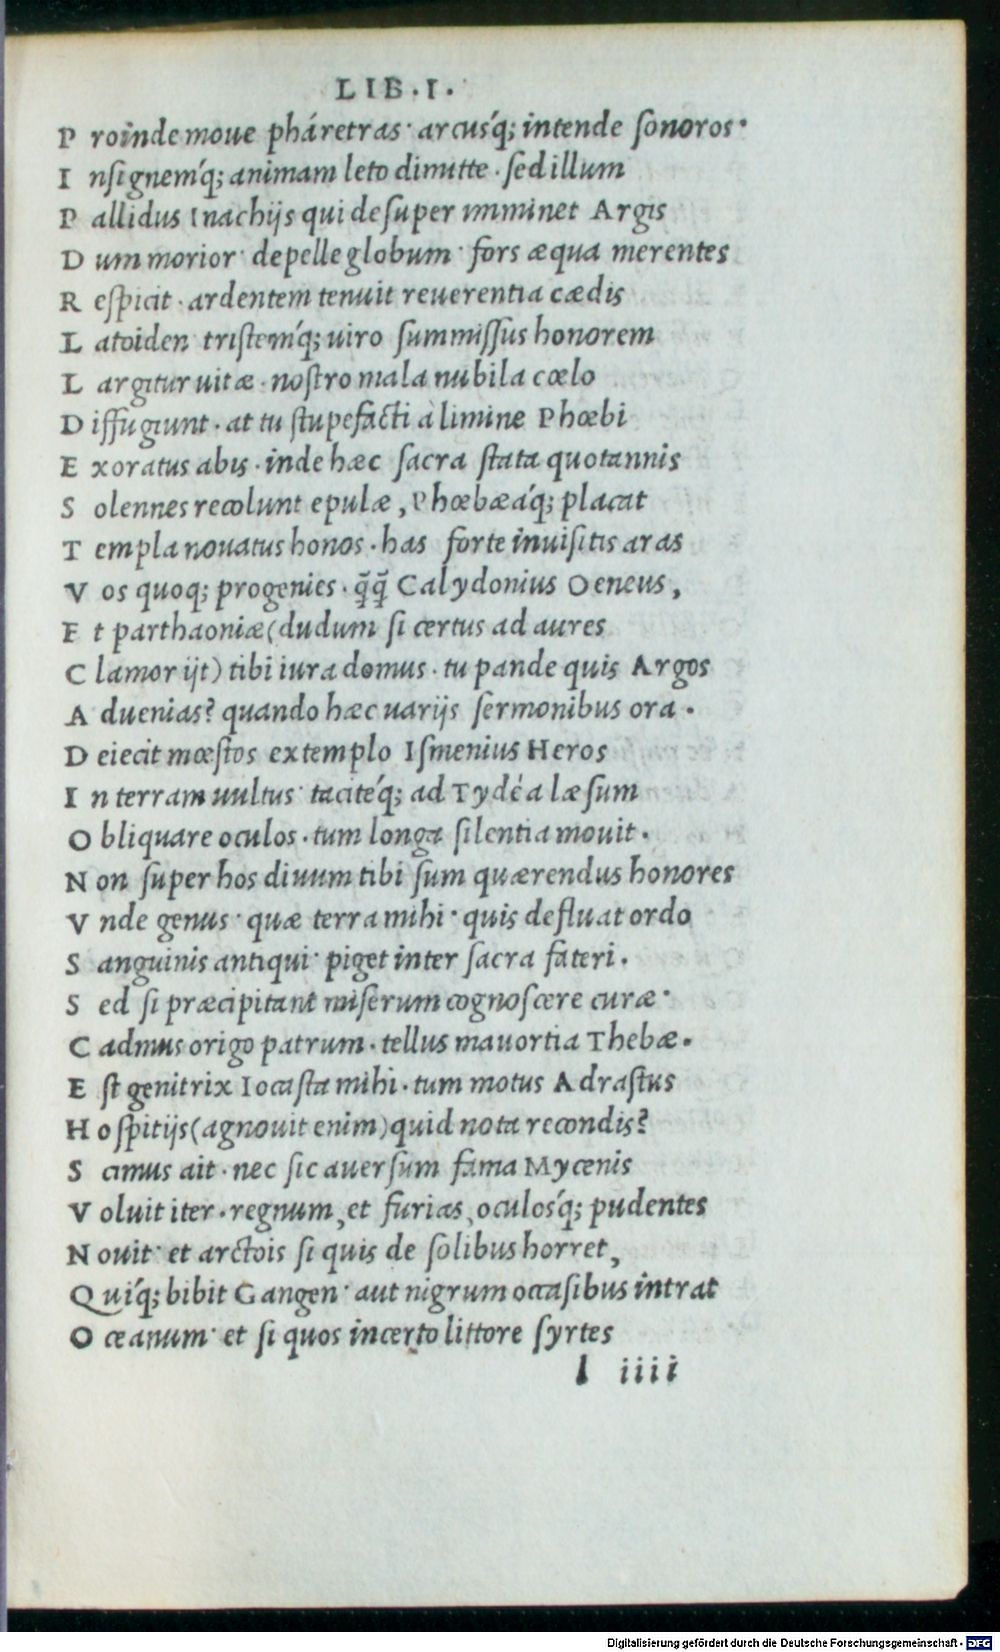 LIB.I.
P roinde moue pháretras· arcusq́; intende ſonoros·
I nſignemq́; animam leto dimitte·ſed illum
P allidus Inachijs qui deſuper imminet Argis
D um morior· depelle globum· fors æqua merentes
R eſpicit·ardentem tenuit reuerentia cædis
L atoiden triſtemq́; uiro ſummiſſus honorem
L argitur uitæ·noſtro mala nubila cœlo
D iffugiunt·at tu ſtupefacti à limine Phœbi
E xoratus abis·inde hæc ſacra ſtata quotannis
S olennes recolunt epulæ, Phœbæaq́; placat
T empla nouatus honos·has forte inuiſitis aras
V os quoq; progenies·q̃q̃ Calydonius Oeneus,
E t parthaoniæ(dudum ſi certus ad aures
C lamor ijt) tibi iura domus·tu pande quis Argos
A duenias? quando hæc uarijs ſermonibus ora.
D eiecit mœſtos extemplo Iſmenius Heros
I n terram uultus· taciteq́; ad Tydéa læſum
O bliquare oculos·tum longa ſilentia mouit.
N on ſuper hos diuum tibi ſum quærendus honores
V nde genus· quæ terra mihi· quis defluat ordo
S anguinis antiqui· piget inter ſacra fateri.
S ed ſi præcipitant miſerum cognoſcere curæ·
C admus origo patrum·tellus mauortia Thebæ.
E ſt genitrix Iocaſta mihi·tum motus Adraſtus
H oſpitijs(agnouit enim)quid nota recondis?
S cimus ait·nec ſic auerſum fama Mycenis
V oluit iter·regnum,et furias,oculosq́; pudentes
N ouit· et arctois ſi quis de ſolibus horret,
Q uiq́; bibit Gangen· aut nigrum occaſibus intrat
O ceanum· et ſi quos incerto littore ſyrtes
l iiii
Digitalisierung gefördert durch die Deutsche Forschungsgemeinschaft - DFG